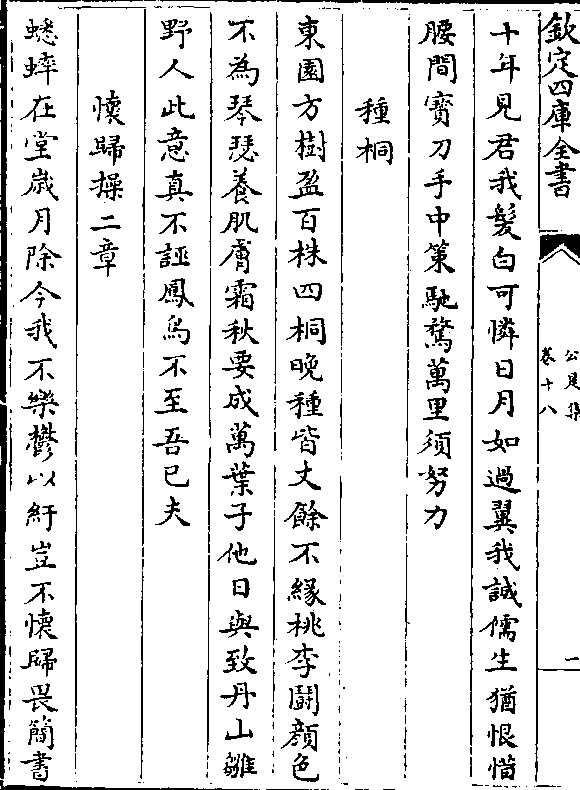 欽定四庫全書
公是集
卷十八
二
十年見君我髮白可憐日月如過翼我誠儒生猶恨惜
腰間寶刀手中策馳騖萬里須努力
種桐
東園方樹盈百株四桐晚種皆丈餘不緣桃李鬭顔色
不為琴瑟養肌膚霜秋要成萬葉子他日與致丹山雛
野人此意真不誣鳳鳥不至吾已夫
懷歸操二章
蟋蟀在堂歲月除今我不樂鬱以紆豈不懷歸畏簡書